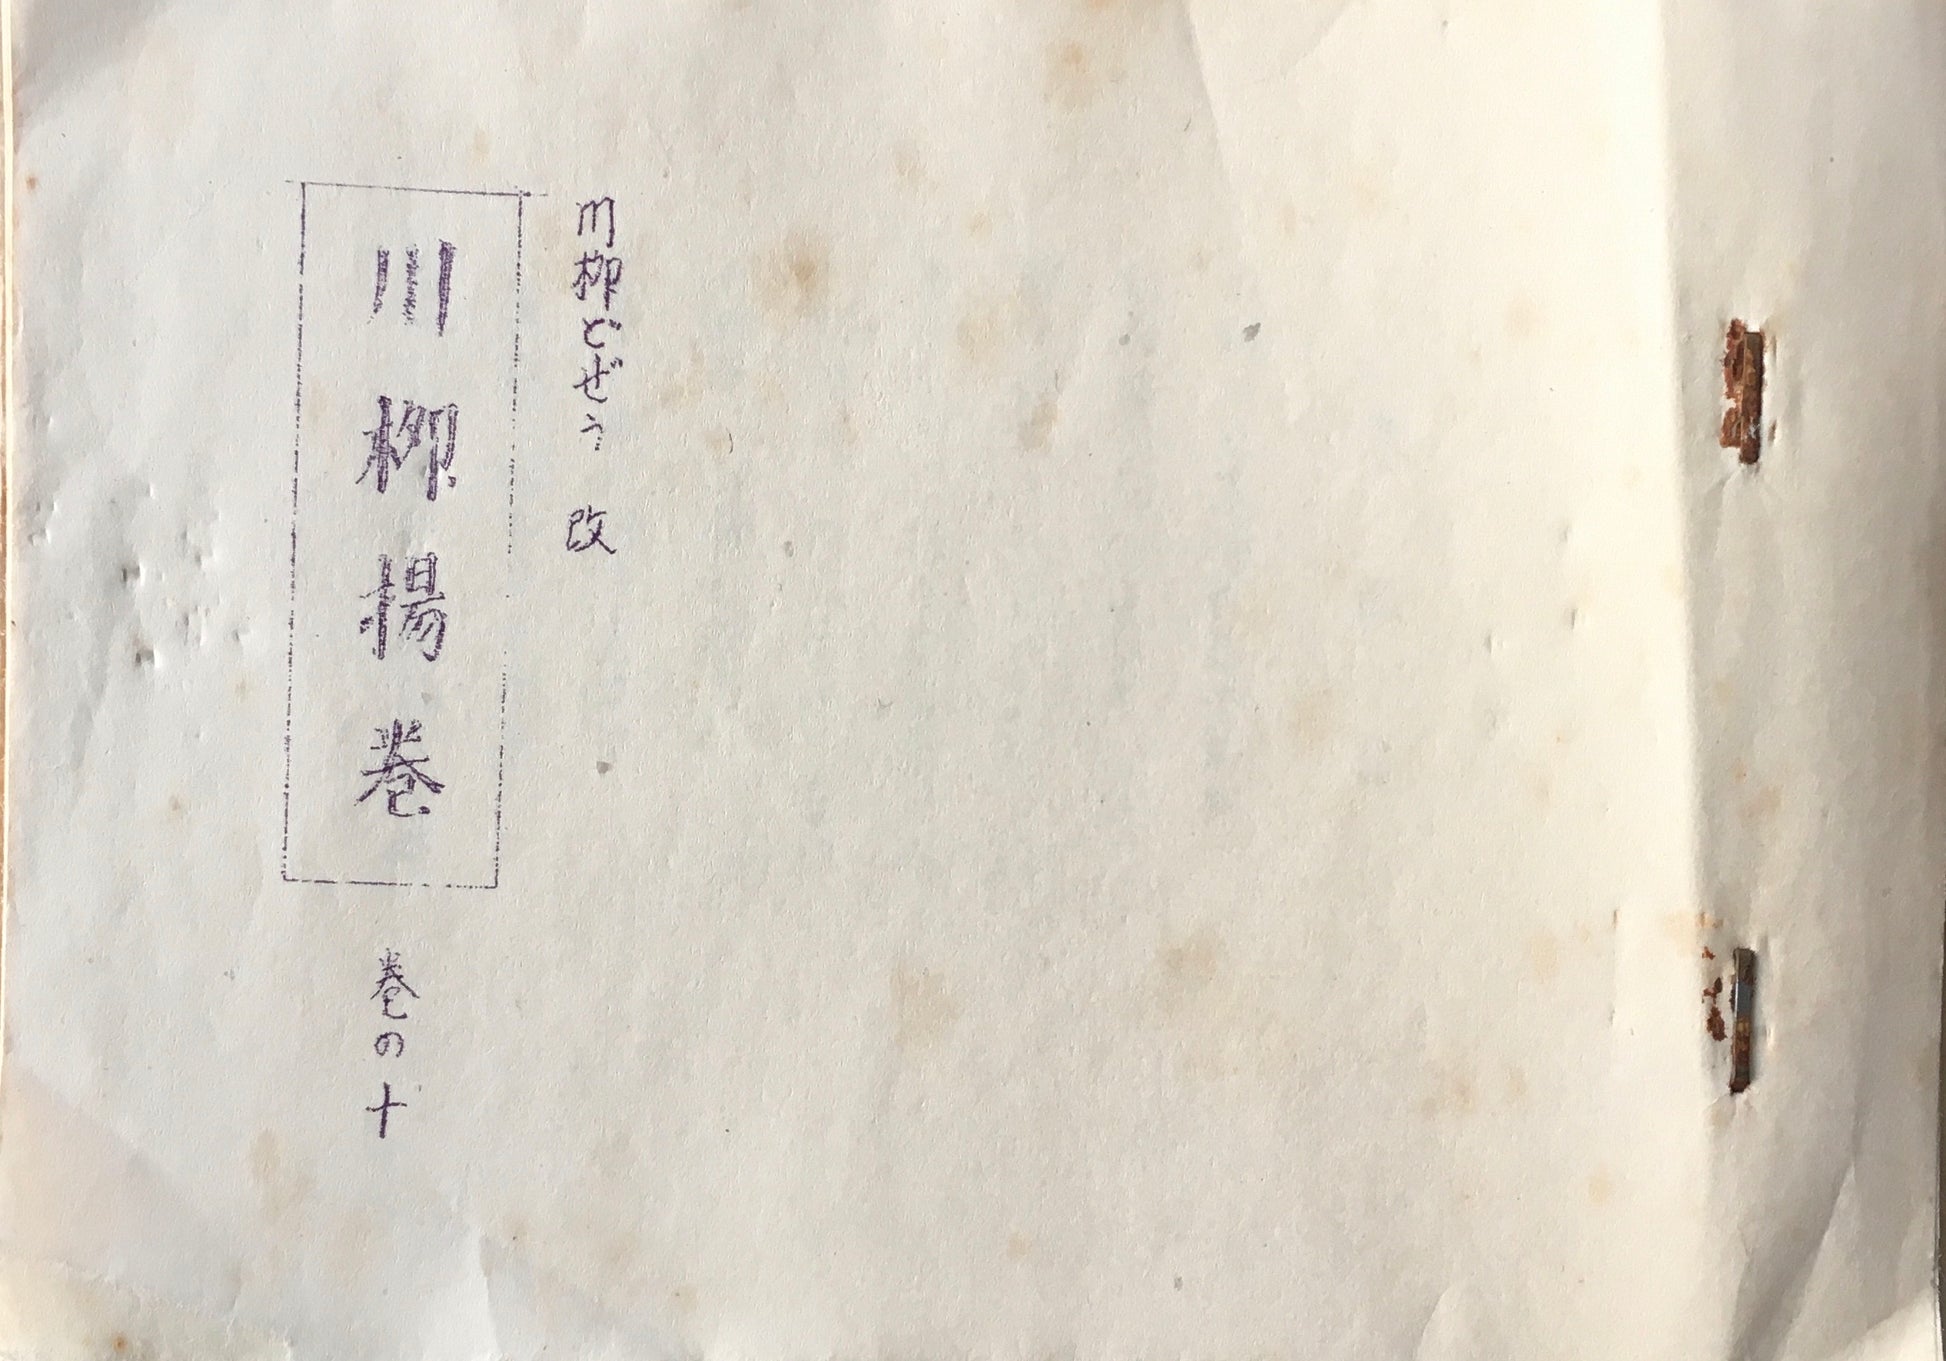 川柳どぜう 改
川柳揚巻
巻の十